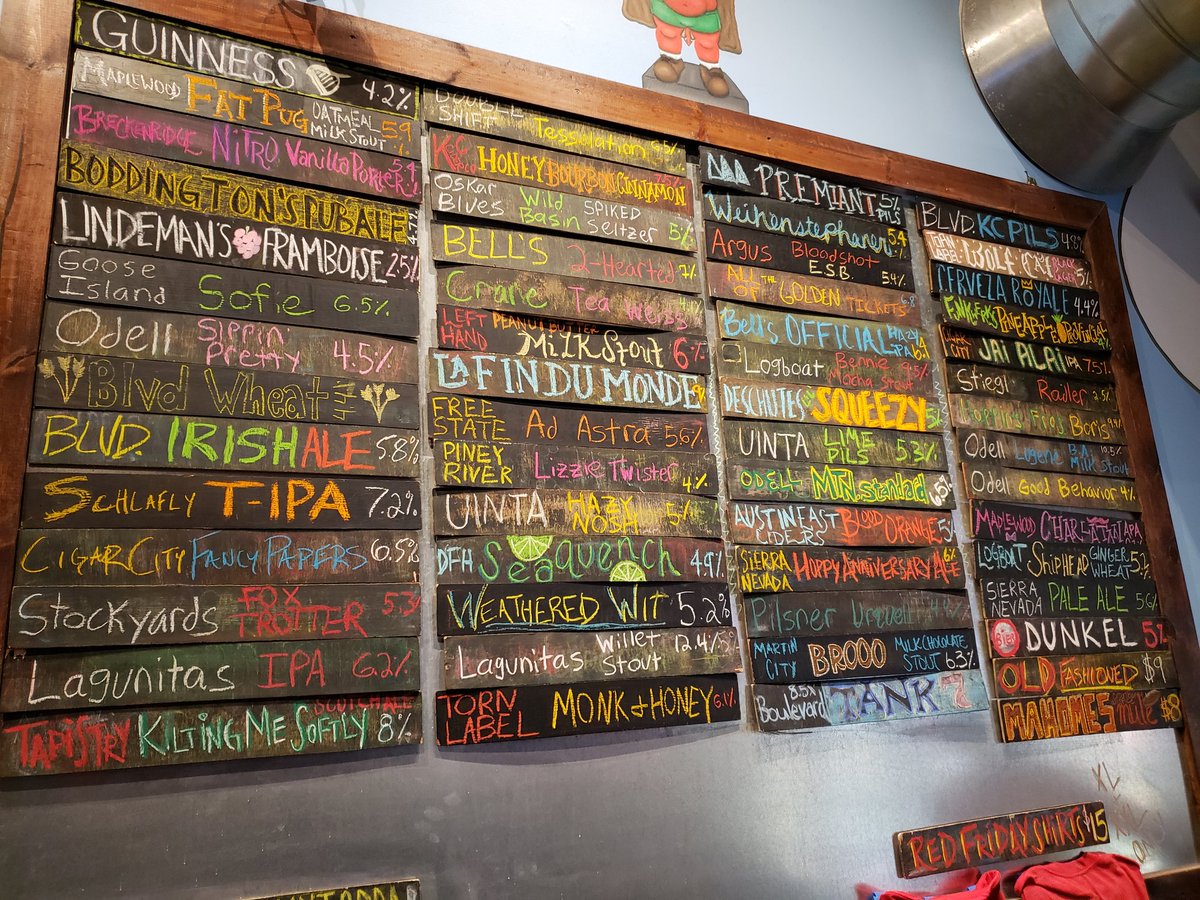 GUINNESS 4.2%
MAPLEWOOD FAT PUG OATMEAL MILK STOUT 5.9%
BRECKENRIDGE NITRO VANILLA PORTER 5.4%
BODDINGTON'S PUB ALE 4.7%
LINDEMAN'S FRAMBOISE 2.5%
Goose Island Sofie 6.5%
Odell Sippin' Pretty 4.5%
Blvd Wheat 4.4%
BLVD. IRISH ALE 5.8%
SCHLAFLY T-IPA 7.2%
CIGAR CITY FANCY PAPERS 6.5%
Stockyards FOX TROTTER 5.3
Lagunitas IPA 6.2%
TAPISTRY KILTING ME SOFTLY SCOTCH ALE 8%
DOUBLE SHIFT Tessellation 9.5%
HONEY BOURBON CINNAMON
OSKAR BLUES Wild Basin SPIKED Seltzer 5%
BELL'S 2-Hearted 7%
Crane Tea Weiss
LEFT HAND PEANUT BUTTER MILK STOUT 6%
LA FIN DU MONDE
FREE STATE Ad Astra 5.6%
PINEY RIVER Lizzie Twister 4%
UINTA HAZY NOSH 5%
DFH Seaquench 4.9%
WEATHERED WIT 5.2%
Lagunitas Willet Stout 12.4%
TORN LABEL MONK & HONEY 6.1%
PREMIANT 5% PILS
Weihenstephaner 5.4%
Argus Bloodshot E.S.B. 5.4%
ALL OF THE GOLDEN TICKETS 6.8
Bell's OFFICIAL HAZY IPA 6.4
Logboat Bennie Mocha Stout 9.5%
DESCHUTES SQUEEZY 5%
UINTA LIME PILS 5.3%
ODELL MTN. Standard 6.5%
AUSTIN EAST CIDERS BLOOD ORANGE 5%
SIERRA NEVADA HOPPY ANNIVERSARY ALE 6%
Pilsner Urquell
MARTIN CITY BROOO MILK CHOCOLATE STOUT 6.3%
8.5% Boulevard TANK 7
BLVD. KC PILS 4.8%
CERVEZA ROYALE 4.4%
PINEAPPLE
CIGAR CITY JAI ALAI IPA 7.5%
Stiegl Radler 2.5%
Hoppin' Frog Boris 9.4%
Odell Lugene B.A. Milk Stout 10.5%
Odell Good Behavior 4%
MAPLEWOOD CHARLATAN APA
LOGBOAT SHIPHEAD GINGER WHEAT 5%
SIERRA NEVADA PALE ALE 5.6%
DUNKEL 5%
OLD FASHIONED $9
MAHOMES mule $8
RED FRIDAY SHIRTS $15
XL